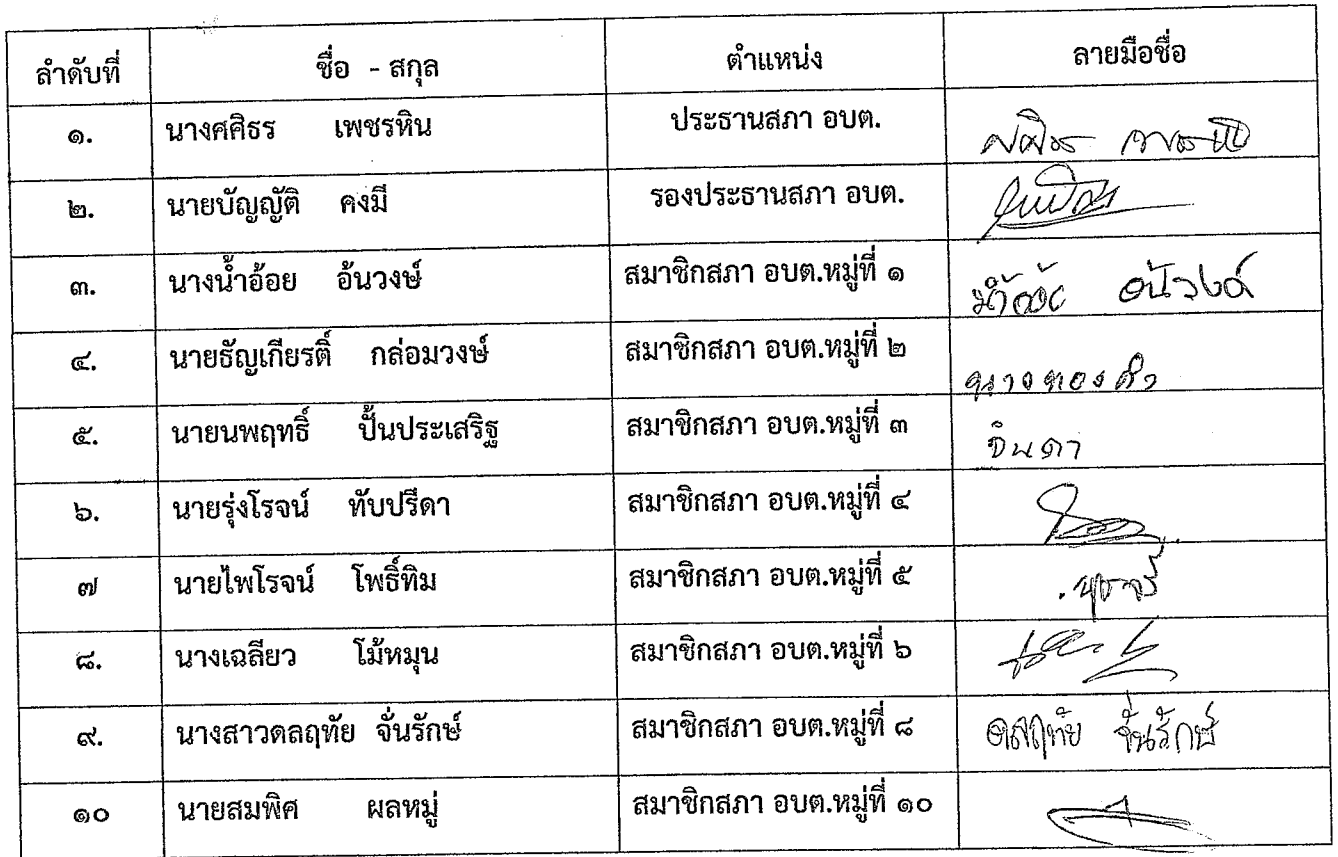 ลำดับที่ ชื่อ - สกุล ตำแหน่ง ลายมือชื่อ
๑. นางศศิธร เพชรหิน ประธานสภา อบต.
๒. นายบัญญัติ คงมี รองประธานสภา อบต.
๓. นางน้ำอ้อย อ้นวงษ์ สมาชิกสภา อบต.หมู่ที่ ๑
๔. นายธัญเกียรติ์ กล่อมวงษ์ สมาชิกสภา อบต.หมู่ที่ ๒
๕. นายนพฤทธิ์ ปั้นประเสริฐ สมาชิกสภา อบต.หมู่ที่ ๓ จินดา
๖. นายรุ่งโรจน์ ทับปรีดา สมาชิกสภา อบต.หมู่ที่ ๔
๗ นายไพโรจน์ โพธิ์ทิม สมาชิกสภา อบต.หมู่ที่ ๕
๘. นางเฉลียว โม้หมุน สมาชิกสภา อบต.หมู่ที่ ๖
๙. นางสาวดลฤทัย จั่นรักษ์ สมาชิกสภา อบต.หมู่ที่ ๘ ดลฤทัย จั่นรักษ์
๑๐ นายสมพิศ ผลหมู่ สมาชิกสภา อบต.หมู่ที่ ๑๐